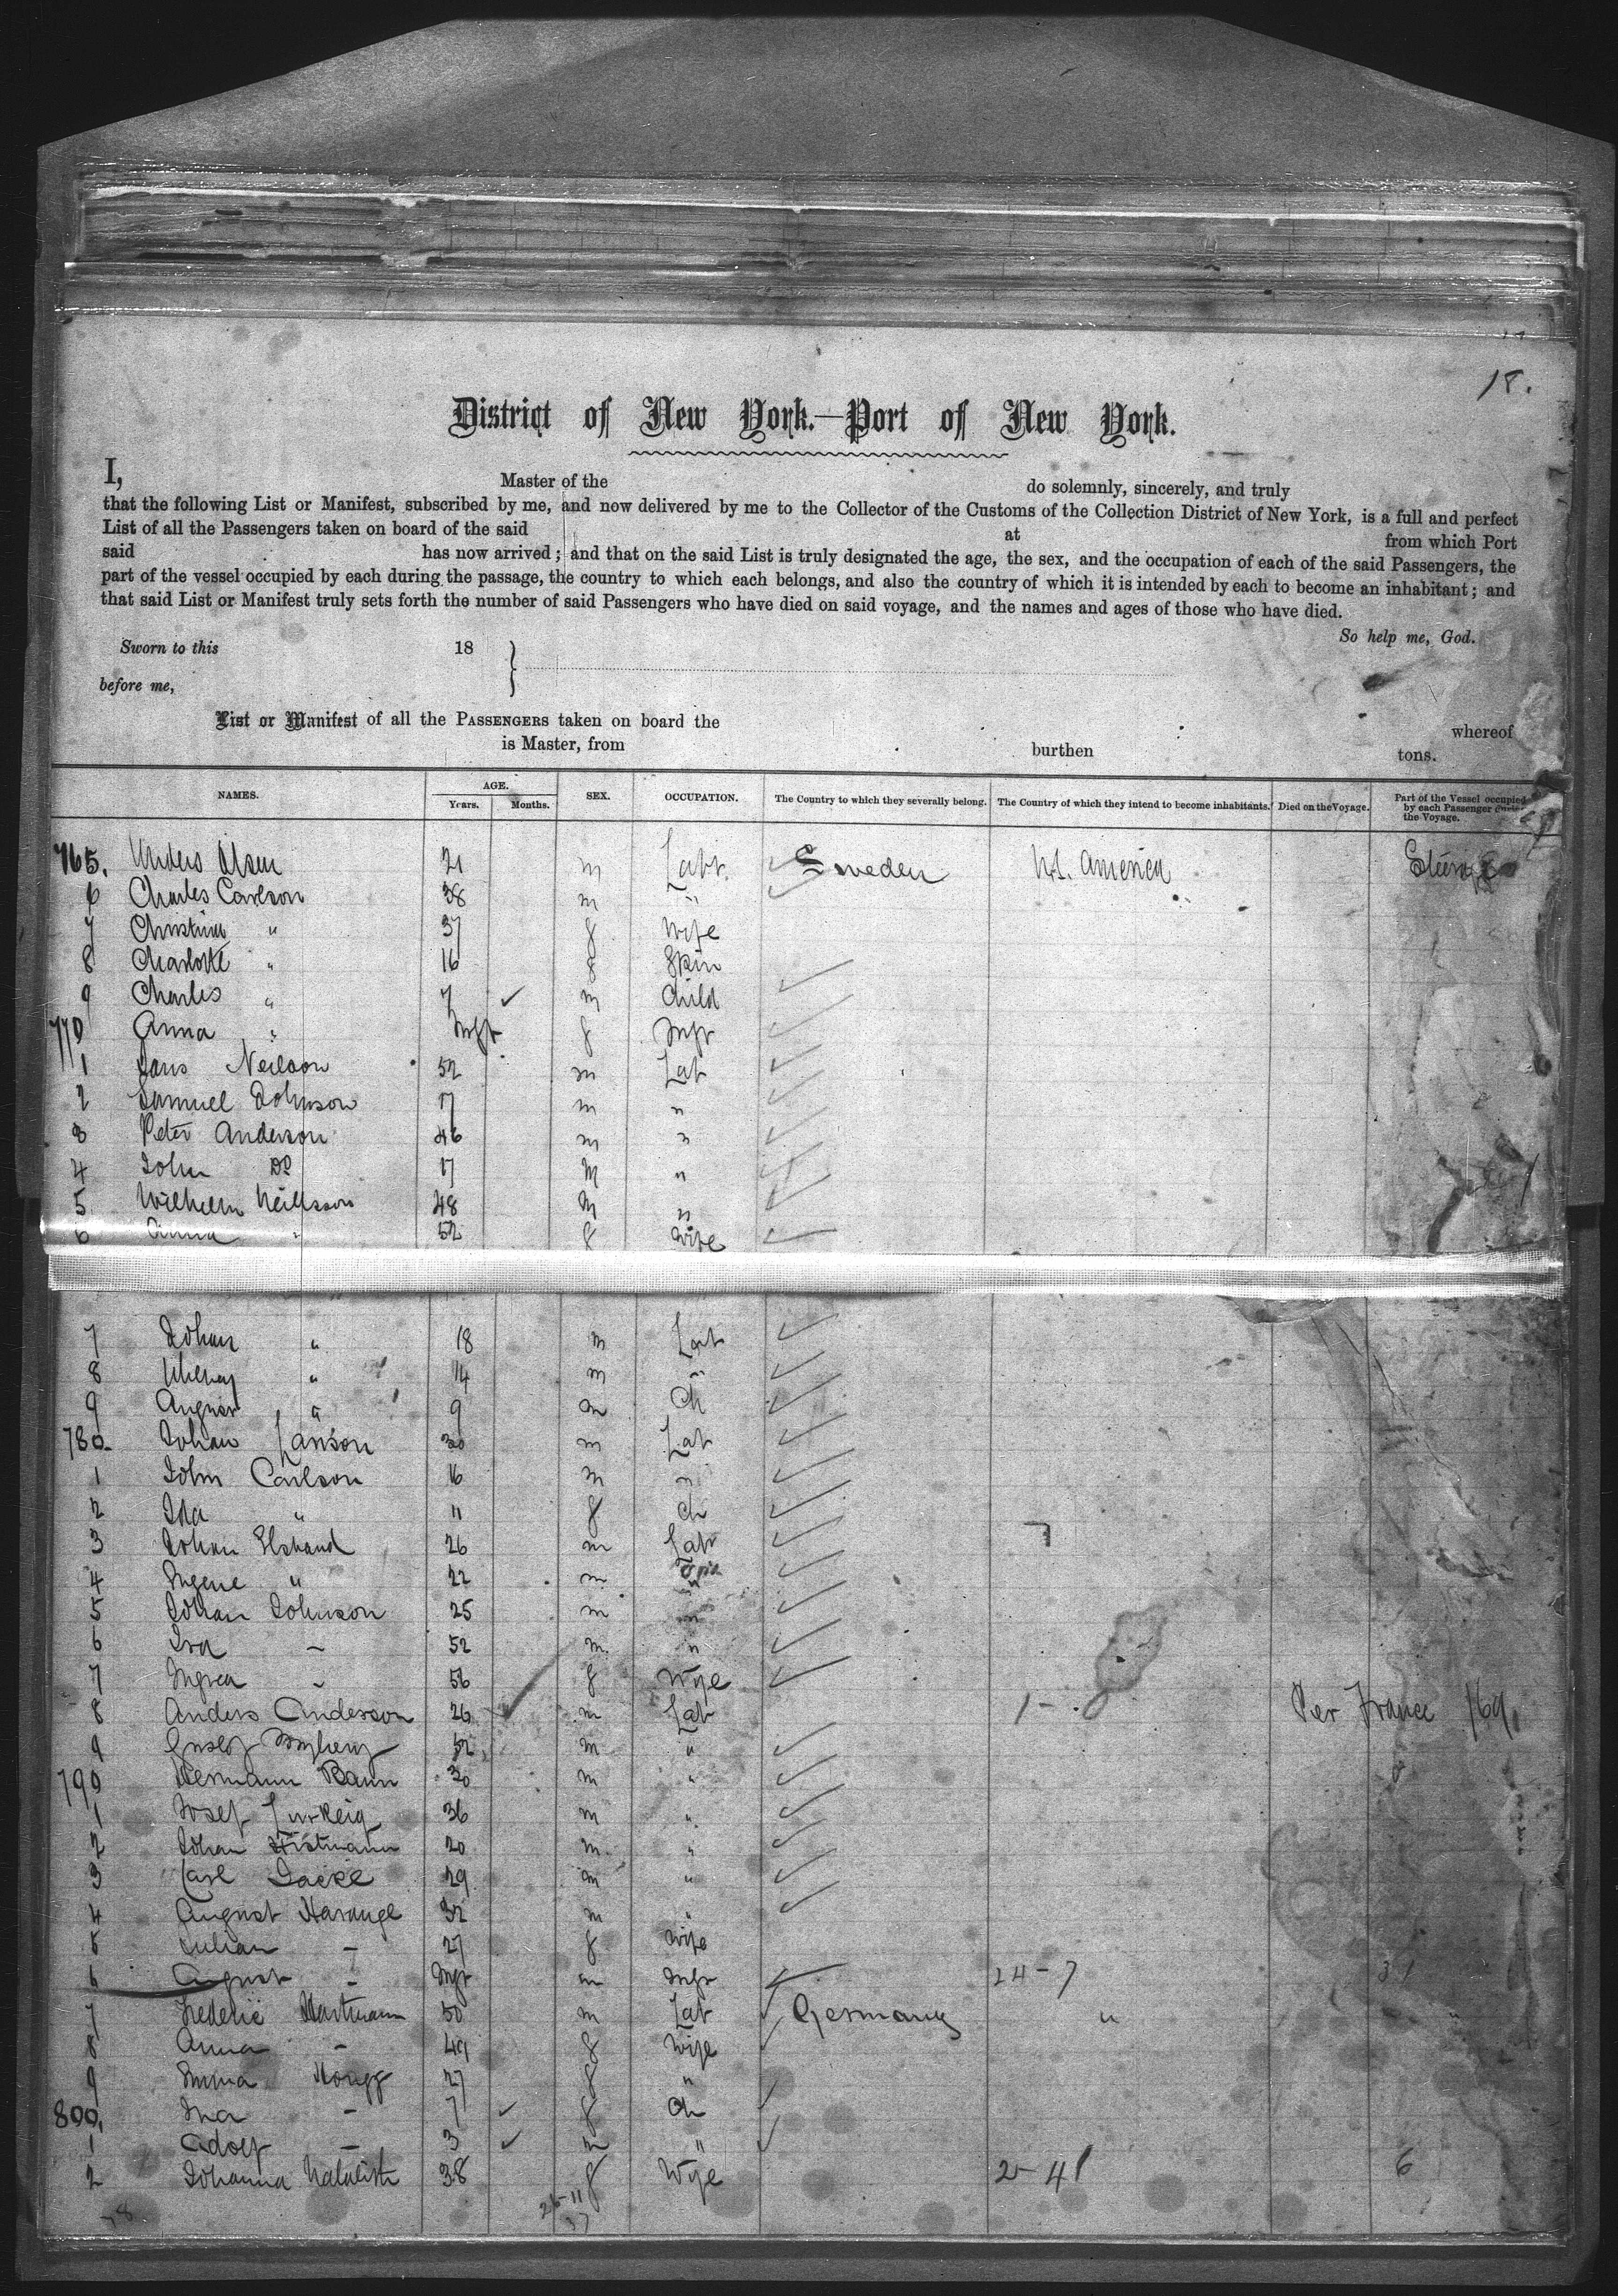 18.
District of New York.—Port of New York.
I, Master of the do solemnly, sincerely, and truly
that the following List or Manifest, subscribed by me, and now delivered by me to the Collector of the Customs of the Collection District of New York, is a full and perfect
List of all the Passengers taken on board of the said at from which Port
said has now arrived; and that on the said List is truly designated the age, the sex, and the occupation of each of the said Passengers, the
part of the vessel occupied by each during the passage, the country to which each belongs, and also the country of which it is intended by each to become an inhabitant; and
that said List or Manifest truly sets forth the number of said Passengers who have died on said voyage, and the names and ages of those who have died.
So help me, God.
Sworn to this 18
before me,
List or Manifest of all the PASSENGERS taken on board the whereof
is Master, from burthen tons.
NAMES. AGE. Years. Months. SEX. OCCUPATION. The Country to which they severally belong. The Country of which they intend to become inhabitants. Died on the Voyage. Part of the Vessel occupied by each Passenger during the Voyage.
765. Anders Olsen 21 m Labr. Sweden America
6 Charles Carlson 38 m "
7 Christina " 37 f Wife
8 Charlotte " 16 f Spin
9 Charles " 7 m Child
770 Anna " Inft f Inft
1 Lars Neilson 52 m Lab
2 Samuel Johnson 17 m "
3 Peter Anderson 46 m "
4 John Do 17 m "
5 Wilhelm Neillsson 48 m "
6 Anna " 52 f Wife
7 Johan " 18 m Lab
8 " 14 m "
9 August " 9 m Ch
780. Johan Lanson 30 m Lab
1 John Carlson 16 m "
2 Ida " 11 f Ch
3 Johan 26 m Lab
4 " 22 m
5 Johan Johnson 25 m "
6 52 m "
7 " 56 f Wife
8 Anders Anderson 26 m Lab 1- Per France 169
9 Gustaf 52 m "
790 Hermann Baum 30 m "
1 Josef 36 m "
2 Johan 20 m "
3 Carl 29 m "
4 August 32 m "
5 Julian - 27 f Wife
6 August - Inft m Inft 24-7 31
7 Frederic Hartmann 50 m Lab Germany "
8 Anna - 49 f Wife
9 27 f "
800. Ina - 7 f Ch
1 Adolf - 3 m "
2 Johanna 38 f Wife 2-41 6